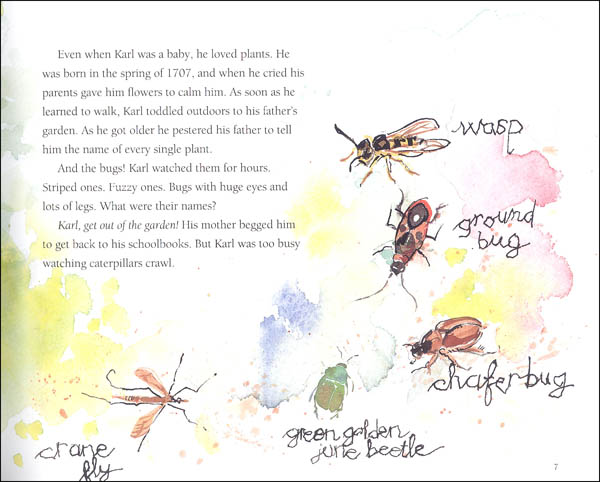 Even when Karl was a baby, he loved plants. He
was born in the spring of 1707, and when he cried his
parents gave him flowers to calm him. As soon as he
learned to walk, Karl toddled outdoors to his father's
garden. As he got older he pestered his father to tell
him the name of every single plant.
And the bugs! Karl watched them for hours.
Striped ones. Fuzzy ones. Bugs with huge eyes and
lots of legs. What were their names?
Karl, get out of the garden! His mother begged him
to get back to his schoolbooks. But Karl was too busy
watching caterpillars crawl.
wasp
ground
bug
chafer bug
green golden
june beetle
crane
fly
7